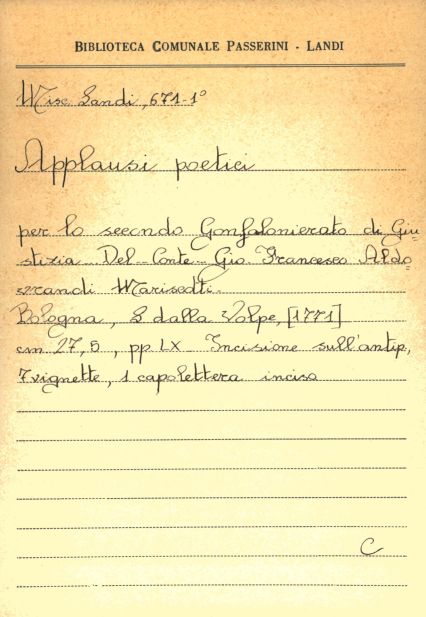 BIBLIOTECA COMUNALE PASSERINI - LANDI
Misc Landi, 671-1°
Applausi poetici
per lo secondo Gonfalonierato di Giu=
stizia Del Conte Gio. Francesco Aldo=
vrandi Mariscotti.
Bologna, L dalla Volpe, [1771]
cm 27,5, pp LX Incisione sull'antip,
7 vignette, 1 capolettera inciso
C